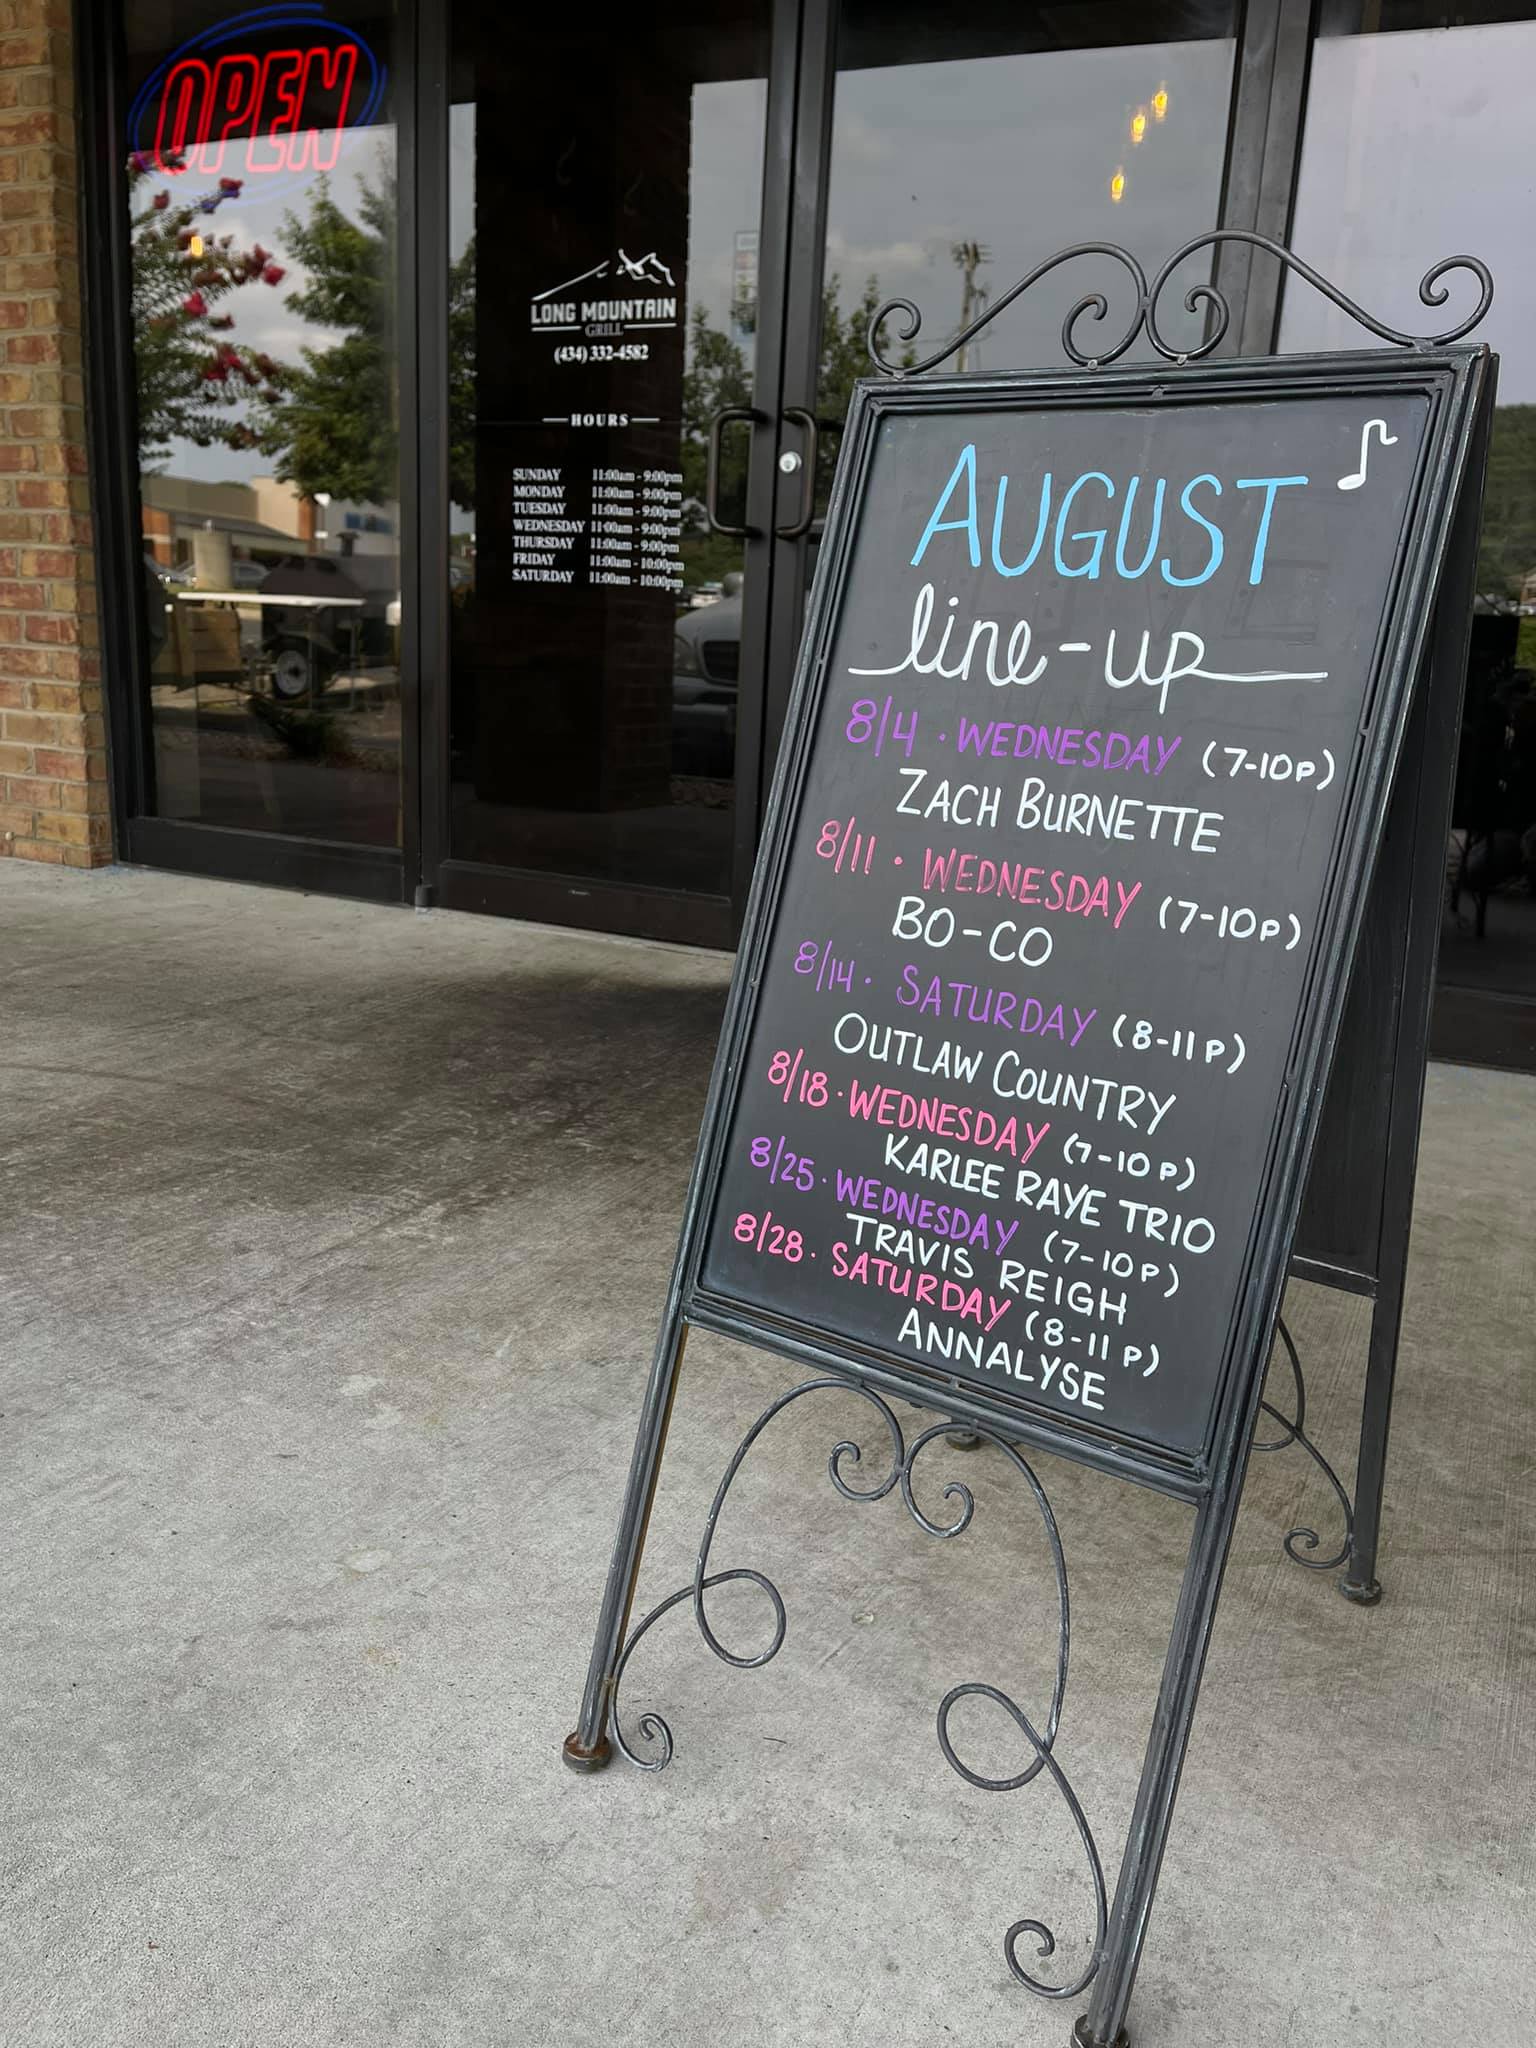 OPEN
LONG MOUNTAIN
GRILL
(434) 332-4582
HOURS
SUNDAY 11:00am - 9:00pm
MONDAY 11:00am - 9:00pm
TUESDAY 11:00am - 9:00pm
WEDNESDAY 11:00am - 9:00pm
THURSDAY 11:00am - 9:00pm
FRIDAY 11:00am - 10:00pm
SATURDAY 11:00am - 10:00pm
AUGUST
line-up
8/4 · WEDNESDAY (7-10P)
ZACH BURNETTE
8/11 · WEDNESDAY (7-10P)
BO-CO
8/14 · SATURDAY (8-11P)
OUTLAW COUNTRY
8/18 · WEDNESDAY (7-10P)
KARLEE RAYE TRIO
8/25 · WEDNESDAY (7-10P)
TRAVIS REIGH
8/28 · SATURDAY (8-11P)
ANNALYSE